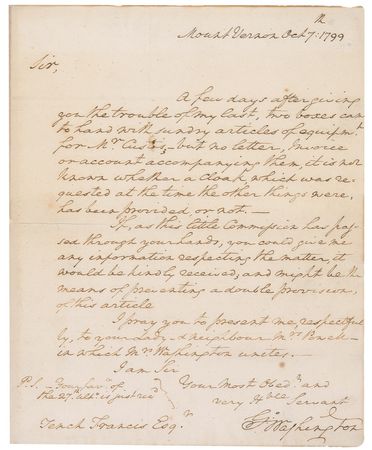 Mount Vernon Oct 7th: 1799
Sir,
A few days after giving
you the trouble of my last, two boxes came
to hand with sundry articles of equipmt
for Mr Custis,—but no letter, Invoice
or account accompanying them, it is not
known whether a cloak, which was re-
quested at the time the other things were,
has been provided or not.—
If, as this little Commission has pas-
sed through your hands, you could give me
any information respecting the matter, it
would be kindly received, and might be the
means of preventing a double provision,
of this article
I pray you to present me, respectful
ly, to your Lady, & neighbour Mrs
in which Mrs Washington unites.—
I am Sir
P.S.—Your favr of
the 27th ulto is just recd
Your Most Obedt and
very Hble Servant
Go Washington
Tench Francis Esqr